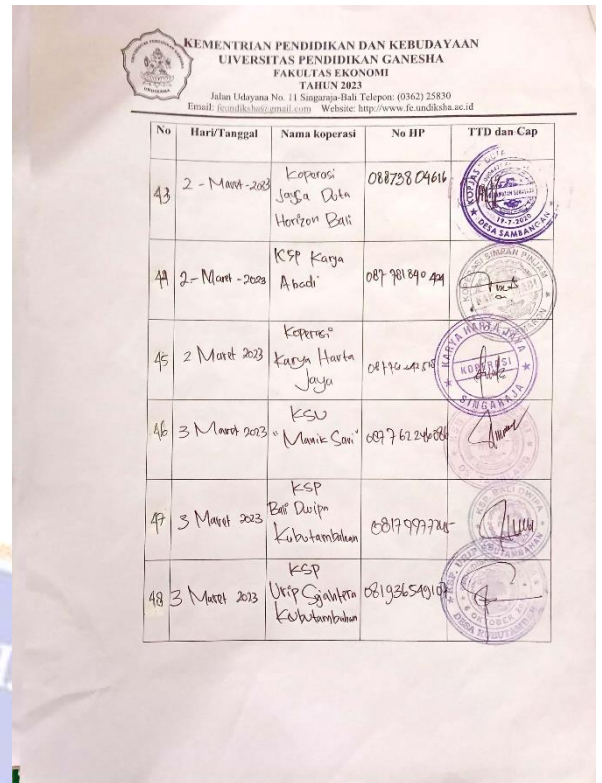 KEMENTRIAN PENDIDIKAN DAN KEBUDAYAAN
UIVERSITAS PENDIDIKAN GANESHA
FAKULTAS EKONOMI
TAHUN 2023
Jalan Udayana No. 11 Singaraja-Bali Telepon: (0362) 25830
Email: feundiksha@gmail.com Website: http://www.fe.undiksha.ac.id
No Hari/Tanggal Nama koperasi No HP TTD dan Cap
43 2 - Maret - 2023 Koperasi
Jassa Duta
Horizon Bali
08873804616
KOPJAS DUTA
19-7-2020
DESA SAMBANGAN
44 2 - Maret - 2023 KSP Karya
Abadi
087 781 840 424
KOPERASI SIMPAN PINJAM
45 2 Maret 2023 Koperasi
Karya Harta
Jaya
KARYA HARTA JAYA
KOPERASI
SINGARAJA
46 3 Maret 2023 KSU
"Manik Sari"
47 3 Maret 2023 KSP
Bali Dwipa
Kubutambahan
KSP. BALI DWIPA
KUBUTAMBAHAN
48 3 Maret 2023 KSP
Urip Sejahtera
Kubutambahan
081936549107
KSP. URIP
6 OKTOBER
DESA KUBUTAMBAHAN